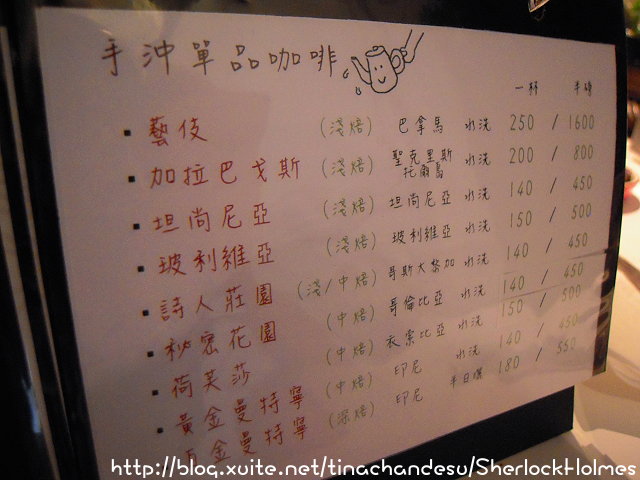 手沖單品咖啡
一杯 半磅
藝伎 (淺焙) 巴拿馬 水洗 250 / 1600
加拉巴戈斯 (淺焙) 聖克里斯托爾島 水洗 200 / 800
坦尚尼亞 (淺焙) 坦尚尼亞 水洗 140 / 450
玻利維亞 (淺焙) 玻利維亞 水洗 150 / 500
詩人莊園 (淺/中焙) 哥斯大黎加 水洗 140 / 450
秘密花園 (中焙) 哥倫比亞 水洗 140 / 450
荷芙莎 (中焙) 衣索比亞 水洗 150 / 500
黃金曼特寧 (中焙) 印尼 水洗 140 / 450
金曼特寧 (深焙) 印尼 半日曬 180 / 550
http://blog.xuite.net/tinachandesu/SherlockHolmes